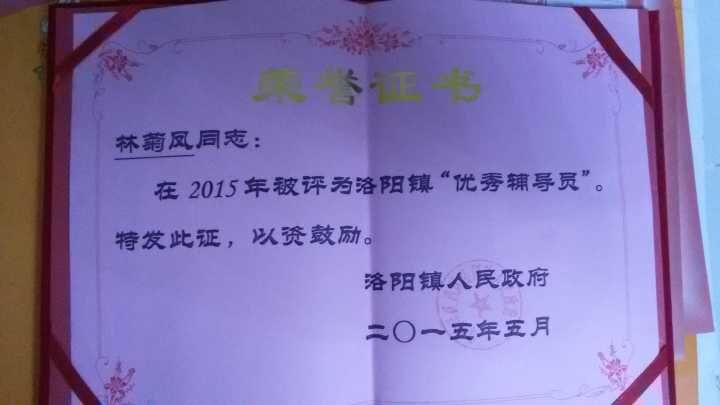 荣誉证书
林菊凤同志：
在 2015 年被评为洛阳镇“优秀辅导员”。
特发此证，以资鼓励。
洛阳镇人民政府
二〇一五年五月